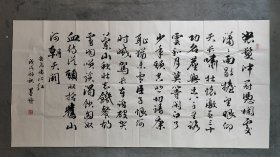 怒髮冲冠憑闌處瀟
瀟雨歇抬望眼仰
天長嘯壯懷激烈三十
功名塵與土八千里路
雲和月莫等閑白了
少年頭空悲切靖康
恥猶未雪臣子恨何
時滅駕長車踏破賀蘭
山缺壯志飢餐胡
虜肉笑談渴飲匈奴
血待從頭收拾舊山
河朝天闕
岳飛滿江紅